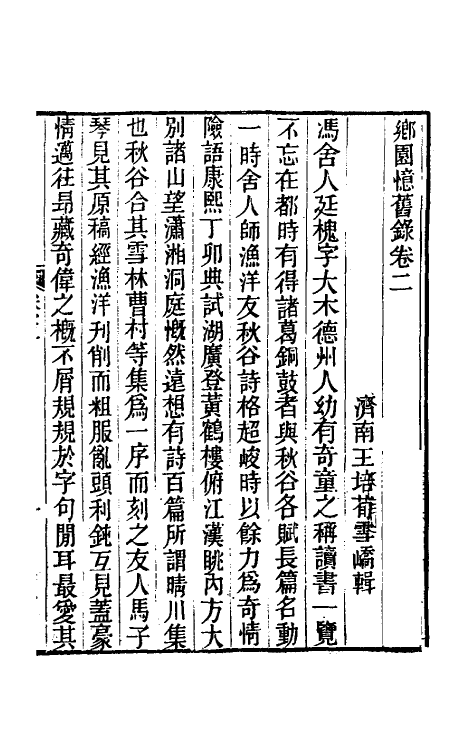 鄉園憶舊錄卷二
濟南王培荀雪嶠輯
馮舍人廷槐字大木德州人幼有奇童之稱讀書一覽
不忘在都時有得諸葛銅鼓者與秋谷各賦長篇名動
一時舍人師漁洋友秋谷詩格超峻時以餘力為奇情
險語康熙丁卯典試湖廣登黃鶴樓俯江漢眺內方大
別諸山望瀟湘洞庭慨然遠想有詩百篇所謂晴川集
也秋谷合其雪林曹村等集為一序而刻之友人馬子
琴見其原稿經漁洋刊削而粗服亂頭利鈍互見蓋豪
情邁往昻藏奇偉之槪不屑規規於字句閒耳最愛其